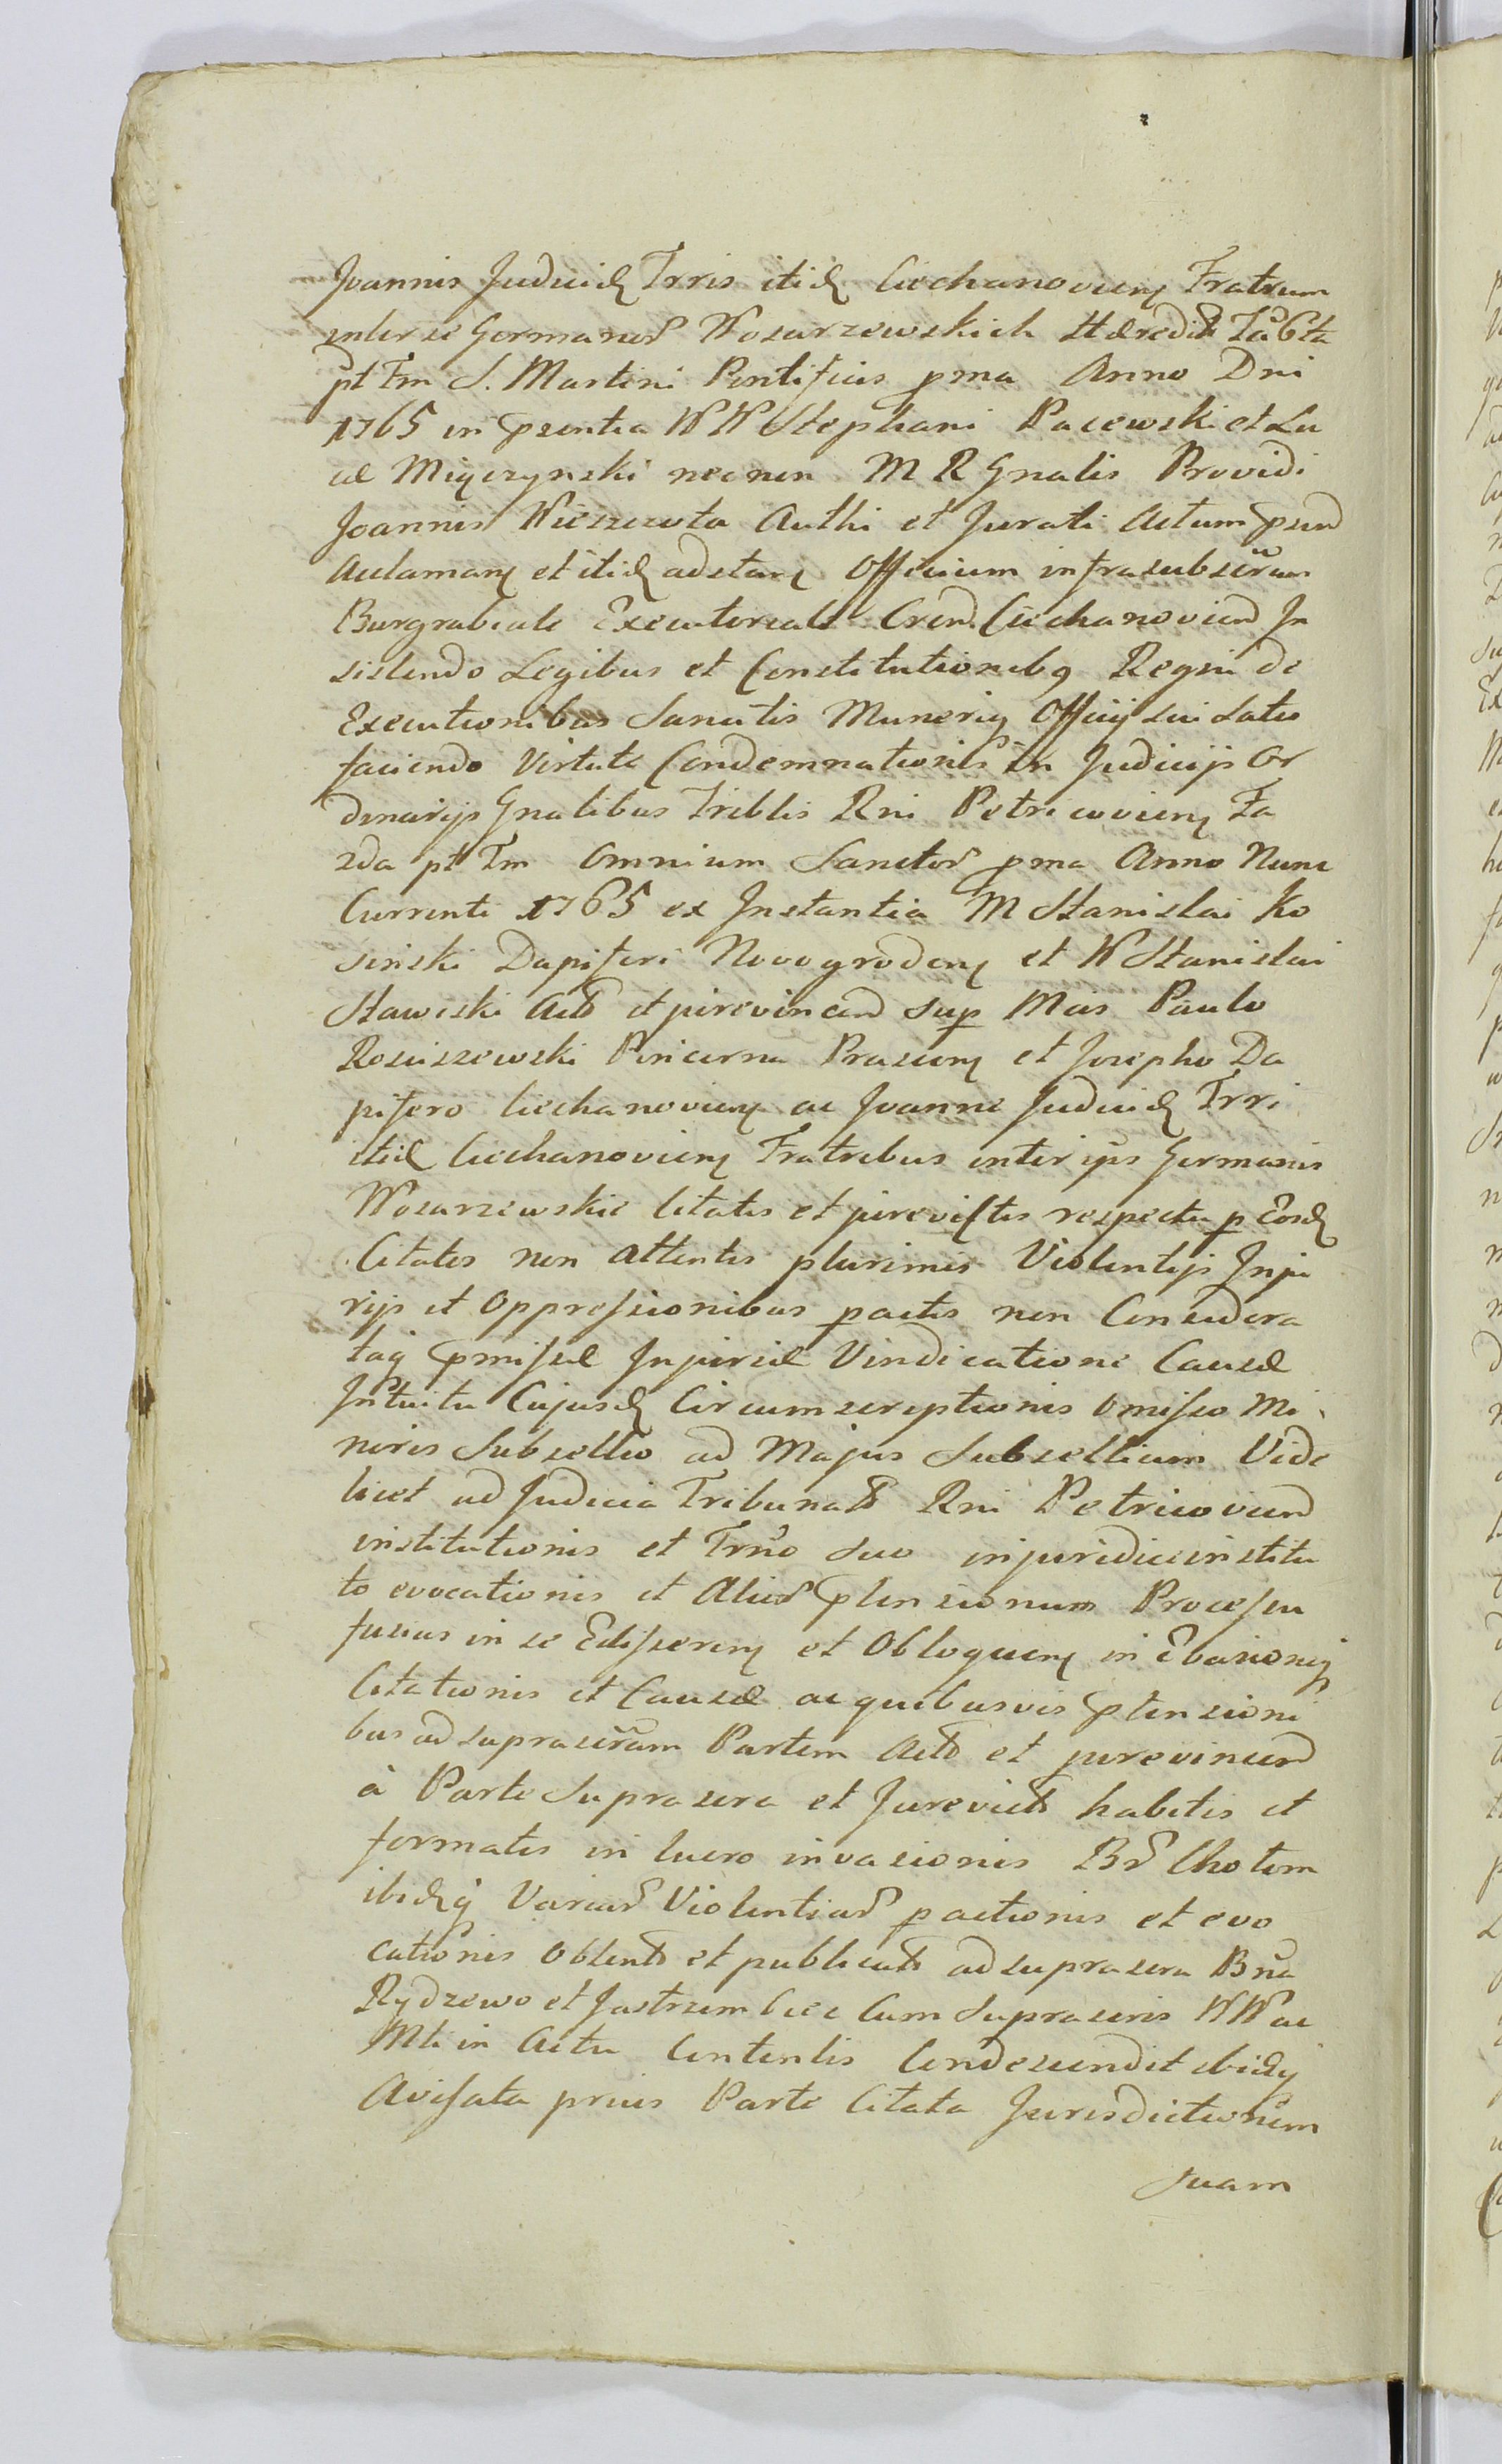 Joannis Judicid Trris itid Ciechanovien Fratrum
inter se Germanor Wosarzewskich Hæredit Fa 6ta
pt Fm S. Martini Pontificis pma Anno Dni
1765 in psentia WW Stephani Pacewski et Lu
cæ Miączynski necnon M R Gnalis Providi
Joannis Wieszczota Authi et Jurati Actum psend
Aclaman et itid adstan Officium infrasubscrum
Burgrabiale Executoriale Crense Ciechanoviens In
sistendo Legibus et Constitutionibq Regni de
Executionibus Sancitis Muneriq Officij sui Satis
faciendo Virtute Condemnationis in Judicijs Or
dinarijs Gnalibus Triblis Rni Petricovien Fa
2da pt Fm Omnium Sanctor pma Anno Nunc
Currenti 1765 ex Instantia M Stanislai Ko
sinski Dapiferi Novogroden et W Stanislai
Stawiski Actor et jurevincen sup Mcis Paulo
Rosciszewski Pincerna Prasnen et Josepho Da
pifero Ciechanovien ac Joanne Judicid Trri
itid Ciechanovien Fratribus inter ips Germanis
Wosarzewskie Citatis et jurevictis respectu p Eosd
Citatos non attentis plurimis Violentijs Inju
rijs et Oppressionibus pactis non Considera
taq pmissæ Injuriæ Vindicatione Causæ
Intuitu Cujusd Circumscriptionis Omisso Mi
noris Subsellio ad Majus Subsellium Vide
licet ad Judicia Tribunalis Rni Petricoviens
institutionis et Trno suo injuridice institu
to evocationis et Alior ptensionum Processu
fusius in se Edisseren et Obloquen in Evasioneq
Citationis et Causæ ac quibusvis ptensioni
bus ad suprascram Partem Actor et jurevincen
à Parte Suprascra et Jurevicta habitis et
formatis in lucro invasionis Br Chotum
ibidq Variar Violentiar pactionis et evo
cationis Obtent et publicat ad suprascra Bna
Rydzewo et Jastrzembiec Cum Suprascris WW ac
Mti in Actu Contentis Condescendit ibidq
Avisata prius Parte Citata Jurisdictionem
suam